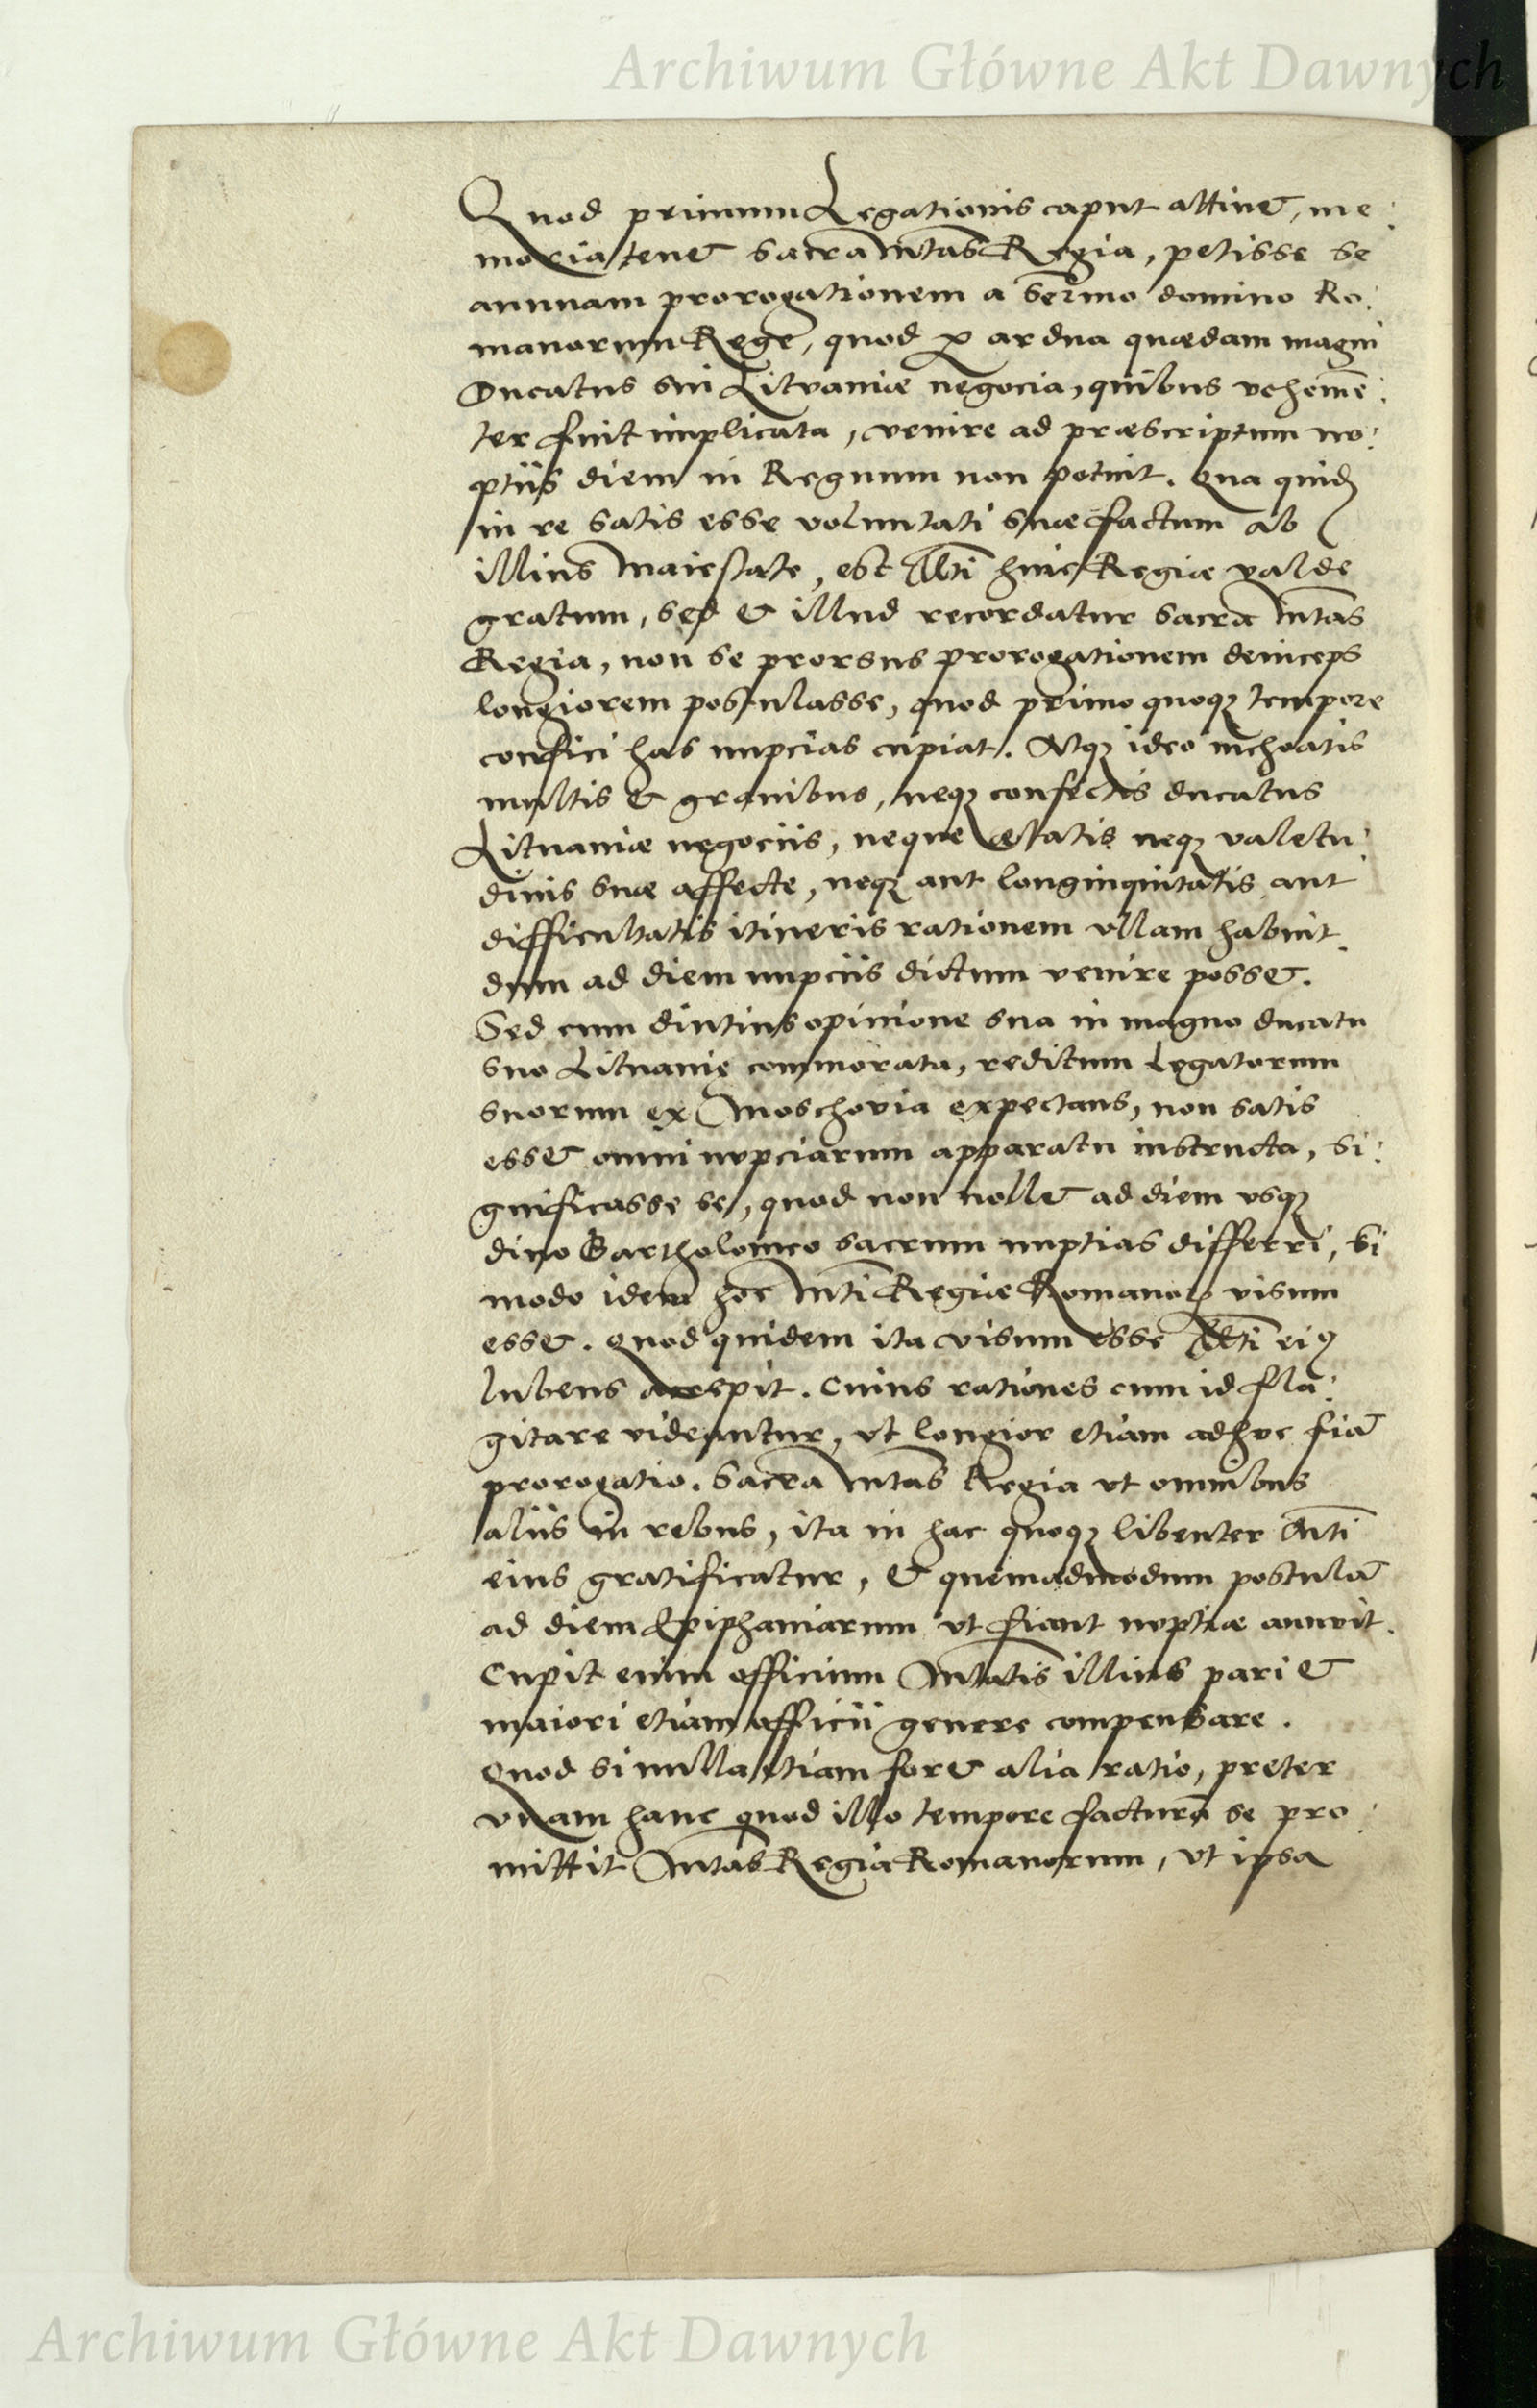 Archiwum Główne Akt Dawnych
Quod primum Legationis caput attinet, me:
moria tenet Sacra Mtas Regia, petisse se
annuam prorogationem a Sermo domino Ro:
manorum Rege, quod ꝑ ardua quædam magni
Ducatus sui Litvaniæ negocia, quibus vehemē:
ter fuit implicata, venire ad præscriptum nu:
ptiis diem in Regnum non potuit. Qua quidē
in re satis esse voluntati suæ factum ab
illius Maiestate, est Mti huic Regiæ valde
gratum, sed & illud recordatur Sacra Mtas
Regia, non se prorsus prorogationem deinceps
longiorem postulasse, quod primo quoqꝫ tempore
confici has nupcias cupiat. Atqꝫ ideo inchoatis
multis & gravibus, neqꝫ confectis ducatus
Lituaniæ negociis, neque ætatis neqꝫ valetu:
dinis suæ affecte, neqꝫ aut longinquitatis aut
difficultatis itineris rationem ullam habuit
dum ad diem nupciis dictum venire posset.
Sed cum diutius opinione sua in magno ducatu
suo Lituanię commorata, reditum Legatorum
suorum ex Moschovia expectans, non satis
esset omni nupciarum apparatu instructa, si:
gnificasse se, quod non nollet ad diem usqꝫ
divo Bartholomeo sacrum nuptias differri, si
modo idem hoc Mti Regiæ Romanoꝝ visum
esset. Quod quidem ita visum esse Mti eiꝰ
lubens accepit. Cuius rationes cum id fla:
gitare videantur, ut longior etiam adhuc fiat
prorogatio. Sacra Mtas Regia ut omnibus
aliis in rebus, ita in hac quoqꝫ libenter Mti
eius gratificatur, & quemadmodum postulat
ad diem Epiphaniarum ut fiant nuptiæ annuit.
Cupit enim officium Mtatis illius pari &
maiori etiam officii genere compensare.
Quod si nulla etiam foret alia ratio, preter
unam hanc quod illo tempore facturā se pro:
mittit Mtas Regia Romanorum, ut ipsa
Archiwum Główne Akt Dawnych